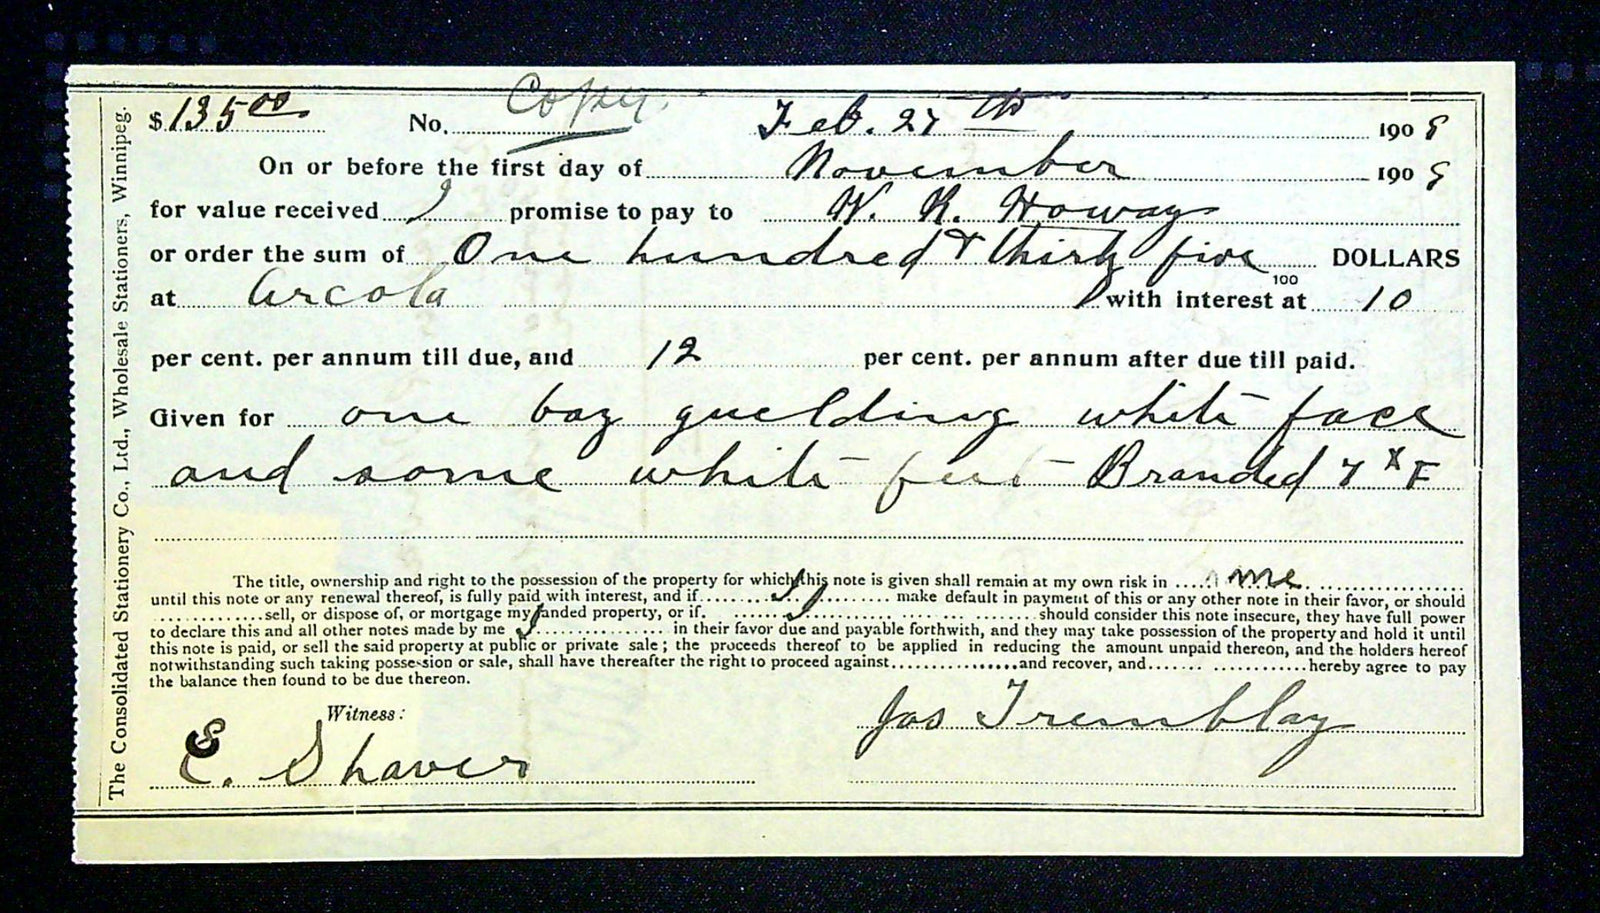 The Consolidated Stationery Co., Ltd., Wholesale Stationers, Winnipeg.
$135.00 No. Copy. Feb. 27th 1908
On or before the first day of November 1908
for value received I promise to pay to W. K. Howay
or order the sum of One hundred & thirty five 100 DOLLARS
at Arcola with interest at 10
per cent. per annum till due, and 12 per cent. per annum after due till paid.
Given for one bay guelding white face
and some white feet Branded 7 X F
The title, ownership and right to the possession of the property for which this note is given shall remain at my own risk in me
until this note or any renewal thereof, is fully paid with interest, and if I make default in payment of this or any other note in their favor, or should
I sell, or dispose of, or mortgage my landed property, or if I should consider this note insecure, they have full power
to declare this and all other notes made by me I in their favor due and payable forthwith, and they may take possession of the property and hold it until
this note is paid, or sell the said property at public or private sale; the proceeds thereof to be applied in reducing the amount unpaid thereon, and the holders hereof
notwithstanding such taking possession or sale, shall have thereafter the right to proceed against and recover, and hereby agree to pay
the balance then found to be due thereon.
Witness:
Jos Tremblay
E. Shaver